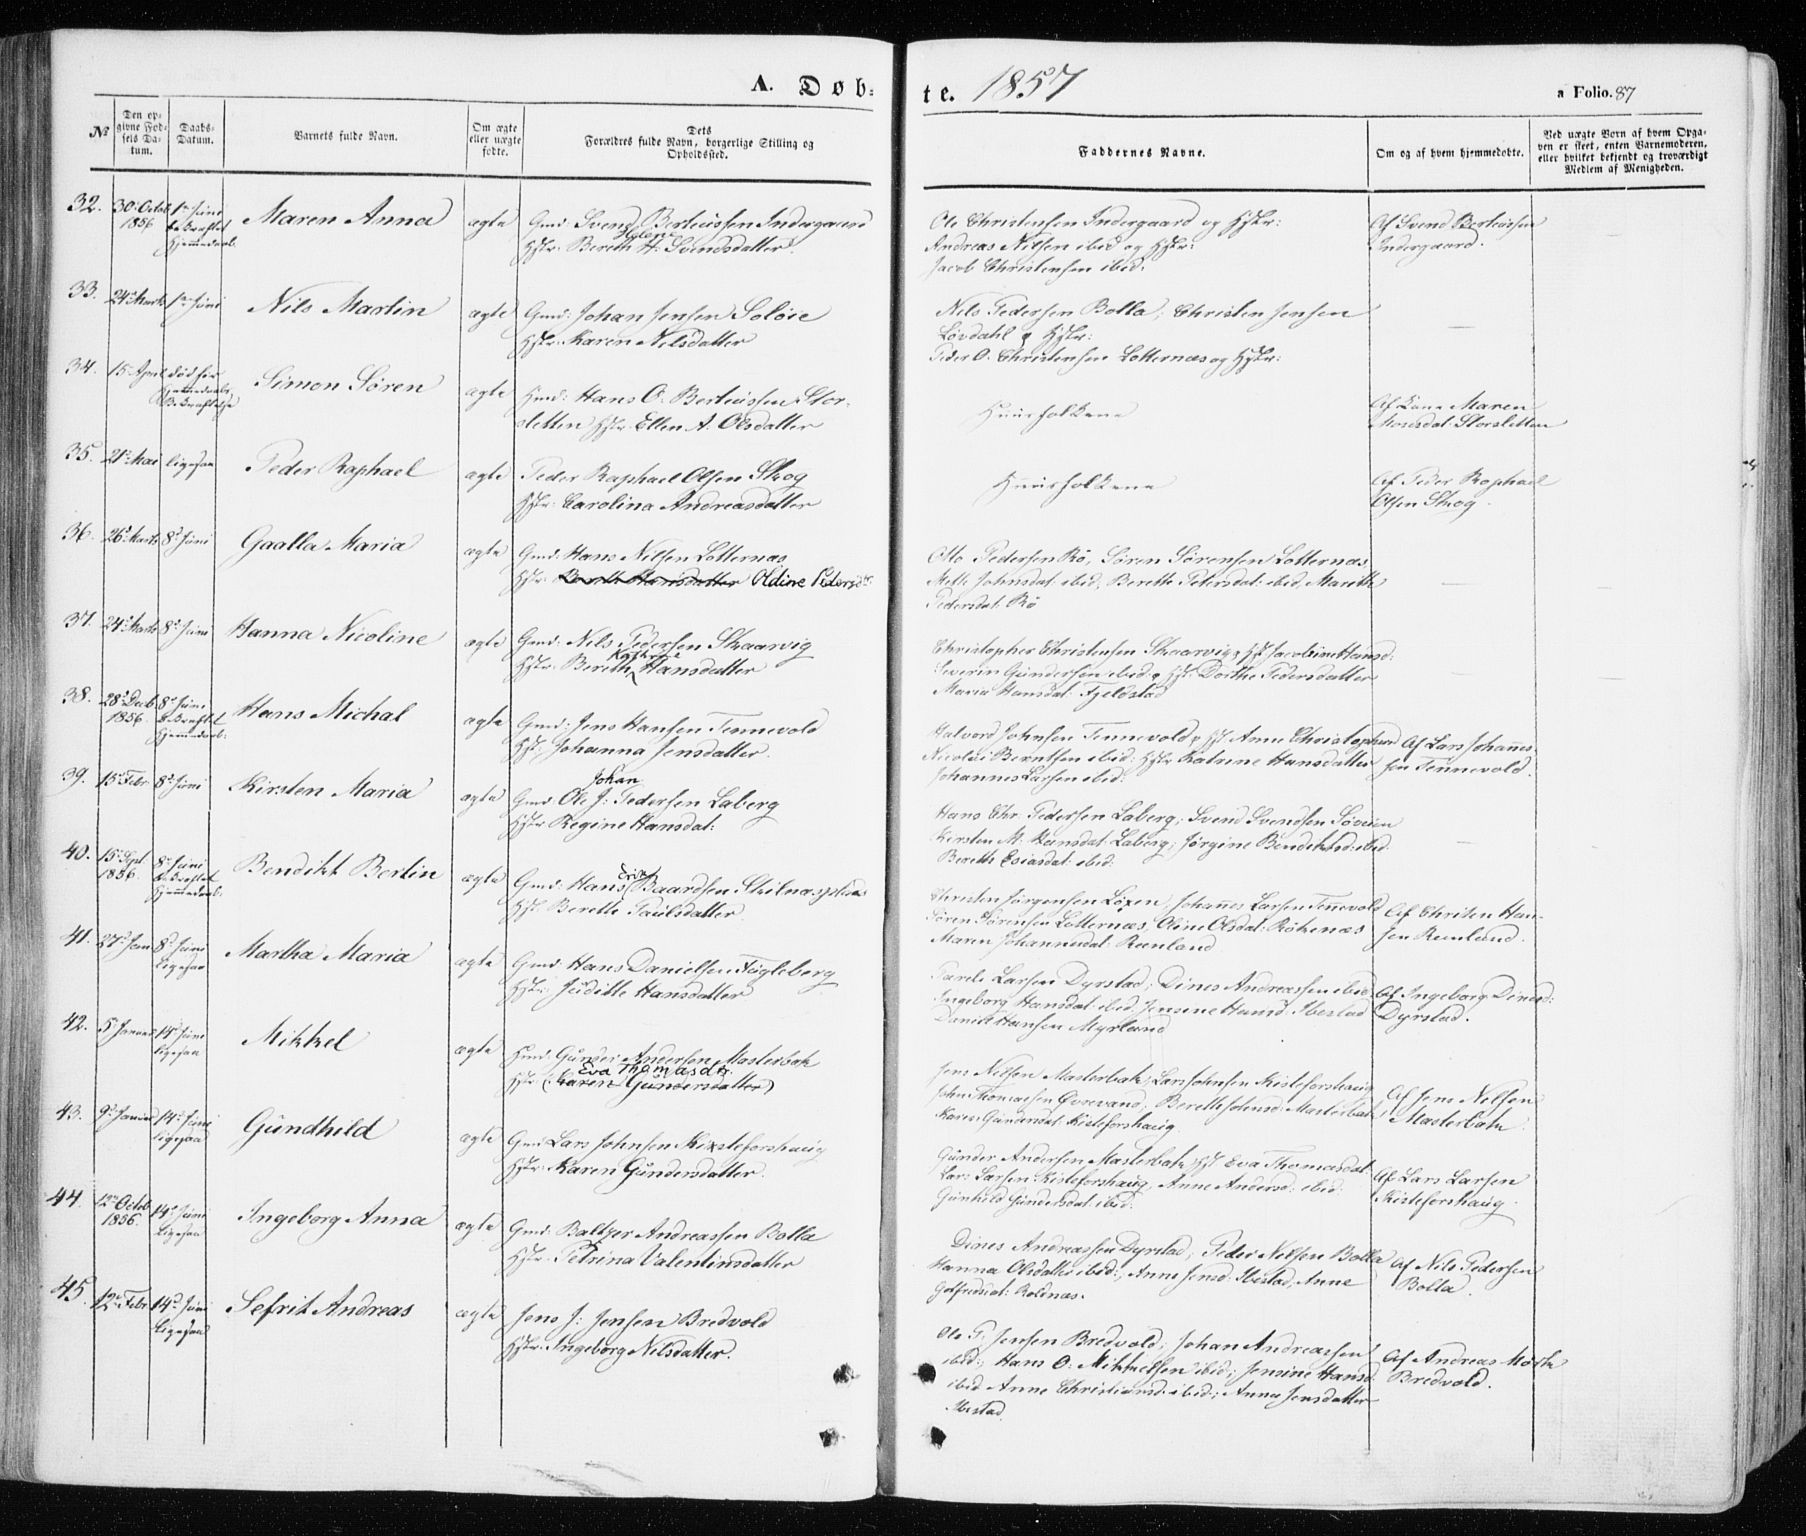 A. Døb-
te. 1857
a Folio. 87
№
Den op-
givne Fød-
sels Da-
tum.
Daabs-
Datum.
Barnets fulde Navn.
Om ægte
eller uægte
fødte.
Dets
Forældres fulde Navn, borgerlige Stilling og
Opholdssted.
Faddernes Navne.
Om og af hvem hjemmedøbte.
Ved uægte Børn af hvem Opga-
ven er skeet, enten Barnemoderen,
eller hvilket bekjendt og troværdigt
Medlem af Menigheden.
32.
30 Octob
1856
1ste Juni
bekræftet
Hjemmedaab:
Maren Anna
ægte
Gmd: Svend Berteüssen Indergaard
Hstr: Bereth H: Svendsdatter.
Ole Christensen Indergaard og Hstr:
Andreas Nilsen ibid og Hstr:
Jacob Christensen ibid.
Af Svend Berteüssen
Indergaard.
33.
24 Marts
1ste Juni
Nils Martin
ægte
Gmd: Johan Jensen Soløie
Hstr: Karen Nilsdatter
Nels Pedersen Bolla; Christen Jensen
Løvdahl & Hstr:
Peder O. Christensen Lotternæs og Hstr:
34.
15 April
død før
Hjemmedaabs
Bekræftelse
Simon Søren
ægte
Hmd: Hans O. Berteüssen Stor-
sletten Hstr: Ellen A. Olsdatter
Huusfolkene
Af Kone Maren
Monsdat: Storsletten
35.
21 Mai
ligesaa
Peder Raphael
ægte
Peder Raphael Olsen Skog
Hstr: Carolina Andreasdatter
Huusfolkene
Af Peder Raphael
Olsen Skog.
36.
26 Marts
8de Juni
Gaalla Maria
ægte
Gmd: Hans Nilsen Lotternæs
Hstr: Bereth Hansdatter Oldine Pedersdtr
Otto Pedersen Rö, Søren Sörensen Lotternæs
Mette Johnsdat: ibid, Berette Petersdat: ibid, Marith
Pedersdat: Rö
37.
24 Marts
8de Juni
Hanna Nicoline
ægte
Gmd: Nils Pedersen Skaarvig
Kathrine
Hstr: Bereth Hansdatter
Christopher Christensen Skaarvig & Hst: Jacobine Hansd:
Severin Gundersen ibid & Hst: Dorthe Pedersdatter
Maria Hansdat: Fjeldstad
38.
28 Decb
1856.
8de Juni
bekræftet
Hjemmedaab:
Hans Michal
ægte
Gmd: Jens Hansen Tennevold
Hst: Johanna Jensdatter.
Halvord Johnsen Tennevold & Hst: Anne Christophersd
Nicolai Berntsen ibid: Hstr Katrine Hansdatter
Johannes Larsen ibid:
Af Lars Johannes-
sen Tennevold.
39.
15 Febr
8de Juni
Kirsten Maria
ægte
Johan
Gmd: Ole J: Pedersen Laberg
Hstr Regine Hansdat:
Hans Chr. Pedersen Laberg; Svend Svendsen Søveien
Kirsten M. Hansdat: Laberg; Jørgine Bendiktsd: ibid:
Bereth Esiasdat: ibid:
40.
15 Sept
1856.
8de Juni
bekræftet
Hjemmedaab.
Bendikt Bertin
ægte
Gmd: Hans Baardsen
Hst: Berette Paulsdatter.
Christen Jørgensen Löxen, Johannes Larsen Tennevold
Sören Sörensen Lotternæs, Oline Olsdat: Rökenæs
Maren Johannesdat: Reenland
Af Christen Han-
sen Reenland.
41.
27 Jan
8de Juni
ligesaa
Martha Maria
ægte
Gmd: Hans Danielsen Fugleberg
Hstr: Juditte Hansdatter
Larsen Dyrstad; Dines Andreassen ibid:
Ingeborg Hansdat: ibid, Jensine Hansd: Ibestad
Daniel Hansen Myrland
Af Ingeborg Dinesd:
Dyrstad.
42.
5 Januar
14de Juni
ligesaa
Mikkel
ægte
Hmd: Gunder Andersen Masterbak
Eva Thomasdtr.
Hstr: (Karen Gundersdatter)
Jens Nilsen Masterbak, Lars Johnsen Kisteforshaug
John Thomassen Øvrevand, Berette Johnsd: Masterbak
Karen Gundersdat: Kisteforshaug.
Af Jens Nilsen
Masterbak.
43.
9 Januar
14de Juni
ligesaa
Gündhild
ægte
Gmd Lars Johnsen Kisteforshaug
Hstr: Karen Gündersdatter.
Günder Andersen Masterbak Hst Eva Thomasdat:
Lars Larsen Kisteforshaug, Anne Andersd: ibid.
Gunhild Gundersdat: ibid.
Af Lars Larsen
Kisteforshaug.
44.
12 Octob
1856.
14de Juni
ligesaa
Ingeborg Anna
ægte
Gmd: Baltzer Andreassen Bolla
Hstr: Petrina Valentinsdatter
Dines Andreassen Dyrstad; Peder Nilsen Bolla
Hanna Olsdatter ibid:, Anne Jensd: Ibestad, Anne
Golfredsdat: Roldnæs.
Af Nils Pedersen
Bolla.
45.
12 Febr
14de Juni
ligesaa
Sefrit Andreas
ægte
Jens J: Jensen Bredvold
Hstr: Ingeborg Nilsdatter.
Ole P. Jensen Bredvold; Johan Andreassen
ibid:, Hans O: Mikkelsen ibid:; Jensine Hansd
ibid Anne Christiansd: ibid; Anna Jensdatter
Ibestad.
Af Andreas
Bredvold.